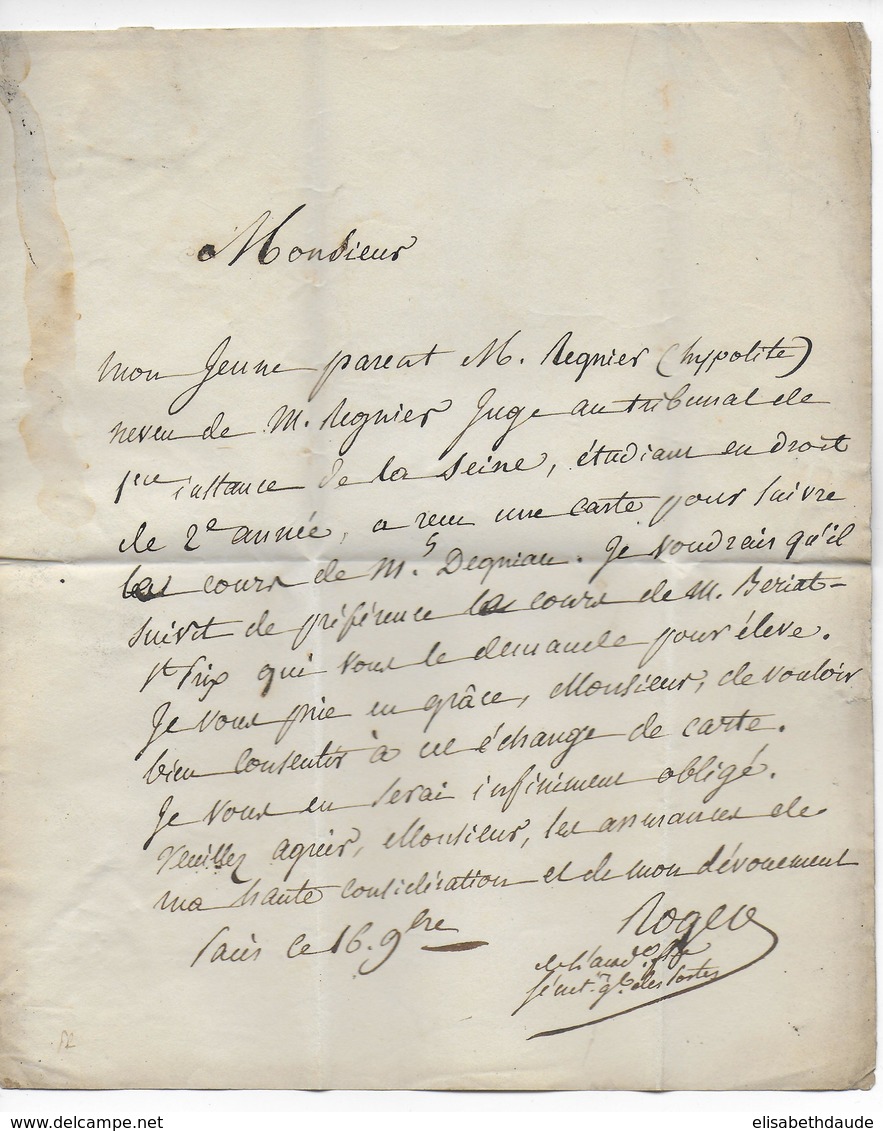 Monsieur
mon jeune parent M. Regnier (hypolite)
neveu de M. Regnier Juge au tribunal de
1ere instance de la Seine, étudiant en droit
de 2e année, a reçu une carte pour suivre
les cours de M. Je voudrais qu'il
suivit de préférence les cours de M. Beriat-
St Prix qui vous le demande pour élève.
Je vous prie en grâce, Monsieur, de vouloir
bien consentir à cet échange de carte.
Je vous en serai infiniment obligé.
Veuillez agréer, Monsieur, les assurances de
ma haute considération et de mon dévouement
Paris ce 16. 9bre
Roger
de l'acad. fse
secret. gl. des Postes
elisabethdaude
www.delcampe.net